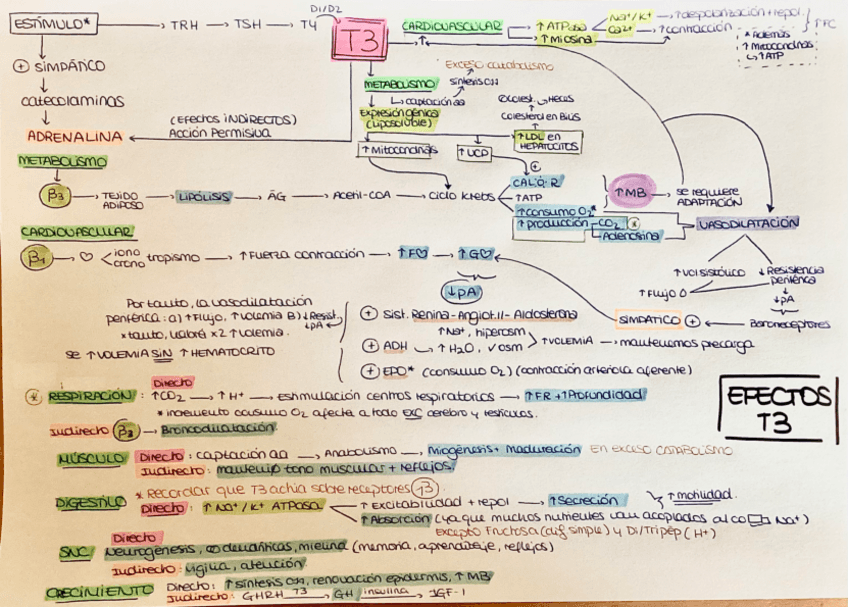 ESTÍMULO* → TRH → TSH → T4 D1/D2 T3
CARDIOVASCULAR → ↑ATPasa Na+/K+ → ↑despolarización + repol. ↑FC
↑ ↑Miosina Ca2+ → ↑contracción
* Además
↑Mitocondrias
↳ ↑ATP
⊕ SIMPÁTICO
catecolaminas
ADRENALINA
(EFECTOS INDIRECTOS)
Acción Permisiva
METABOLISMO
Exceso catabolismo
síntesis
↳ captación aa
Expresión génica
(Liposoluble)
Excret. → Heces
Colesterol en Bilis
↑LDL en
HEPATOCITOS
↑Mitocondrias
↑UCP
METABOLISMO
β3 → TEJIDO ADIPOSO → LIPÓLISIS → ĀG → Acetil-COA → Ciclo Krebs
⊕
CALOR
↑ATP
↑consumo O2*
↑producción CO2 *
Adenosina
↑MB → se requiere
ADAPTACIÓN
VASODILATACIÓN
CARDIOVASCULAR
β1 → ♡ iono crono tropismo → ↑Fuerza contracción → ↑F♡ → ↑G♡
↓PA
↑Vol sistólico
↑Flujo
↓Resistencia
periférica
↓PA
Baroreceptores
SIMPÁTICO ⊕
Por tanto, la vasodilatación
periférica: a) ↑Flujo, ↑Volemia B) ↓Resist.
↓PA
*tanto, habrá x2 ↑volemia.
SE ↑VOLEMIA SIN ↑HEMATOCRITO
⊕ Sist. Renina-Angiot.II-Aldosterona
↑Na+, hiperosm
⊕ ADH → ↑H2O, ↓osm > ↑VOLEMIA → mantenemos precarga
⊕ EPO* (consumo O2) (contracción arteriola aferente)
EFECTOS
T3
* RESPIRACIÓN: Directo ↑CO2 → ↑H+ → estimulación centros respiratorios → ↑FR + ↑Profundidad
*incremento consumo O2 afecta a todo EXC cerebro y testículos.
Indirecto β2 → Broncodilatación
MÚSCULO Directo: captación aa → Anabolismo → Miogénesis + maduración EN EXCESO CATABOLISMO
Indirecto: mantenip tono muscular + reflejos
* Recordar que T3 actúa sobre receptores β
DIGESTIVO Directo: ↑Na+/K+ ATPasa ↑Excitabilidad + repol → ↑Secreción ↑motilidad.
↑Absorción (ya que muchos nutrientes van acoplados al co Na+)
excepto Fructosa (dif simple) y Di/Tripép (H+)
SNC Directo
Neurogénesis, dendríticas, mielina (memoria, aprendizaje, reflejos)
Indirecto: vigilia, atención
CRECIMIENTO Directo: ↑síntesis, renovación epidermis, ↑MB
Indirecto: GHRH T3 → GH insulina → IGF-1